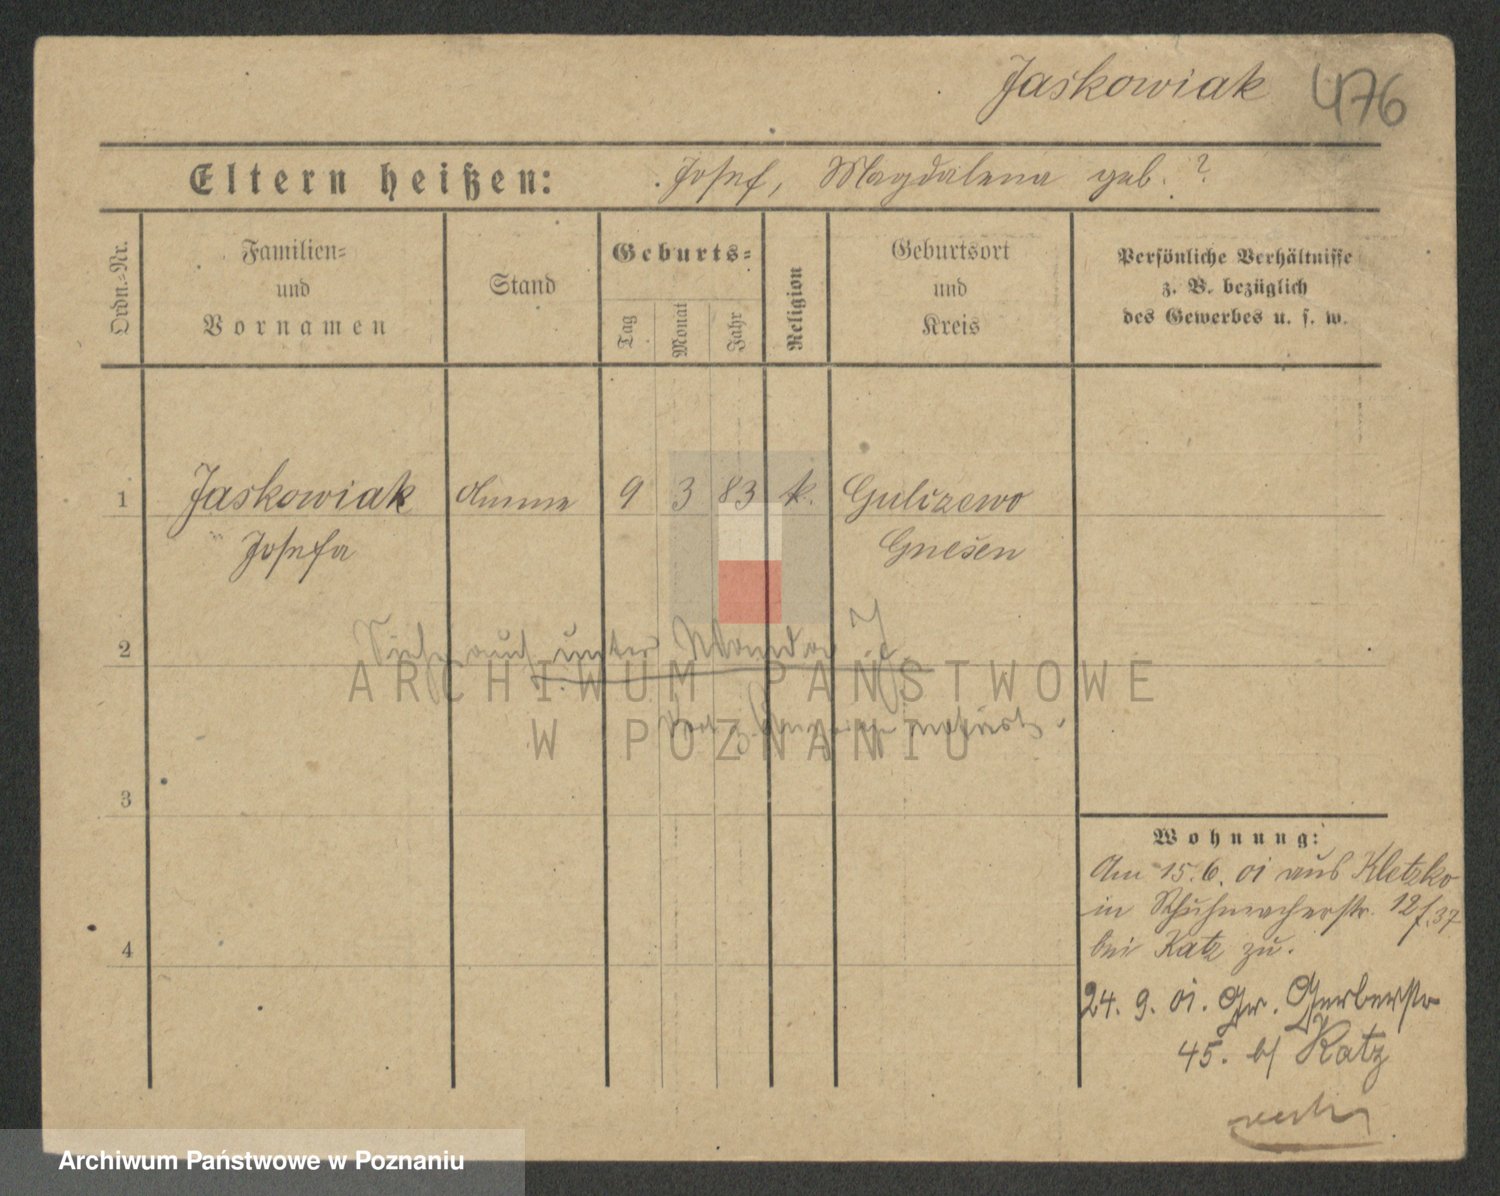 Jaskowiak 476
Eltern heißen: Josef, Magdalena geb. ?
Ordn.-Nr.
Familien-
und
Vornamen
Stand
Geburts-
Tag
Monat
Jahr
Religion
Geburtsort
und
Kreis
Persönliche Verhältnisse
z. B. bezüglich
des Gewerbes u. s. w.
1 Jaskowiak Amme 9 3 83 k. Gulczewo
Josefa Gnesen
2
Siehe auch unter
ARCHIWUM PAŃSTWOWE
W POZNANIU
3
4
Wohnung:
Am 15.6.01 aus Kletzko
in Schuhmacherstr. 12 f. 37
bei Katz zu.
24. 9. 01. Gr. Gerberstr
45. b/ Katz
Archiwum Państwowe w Poznaniu